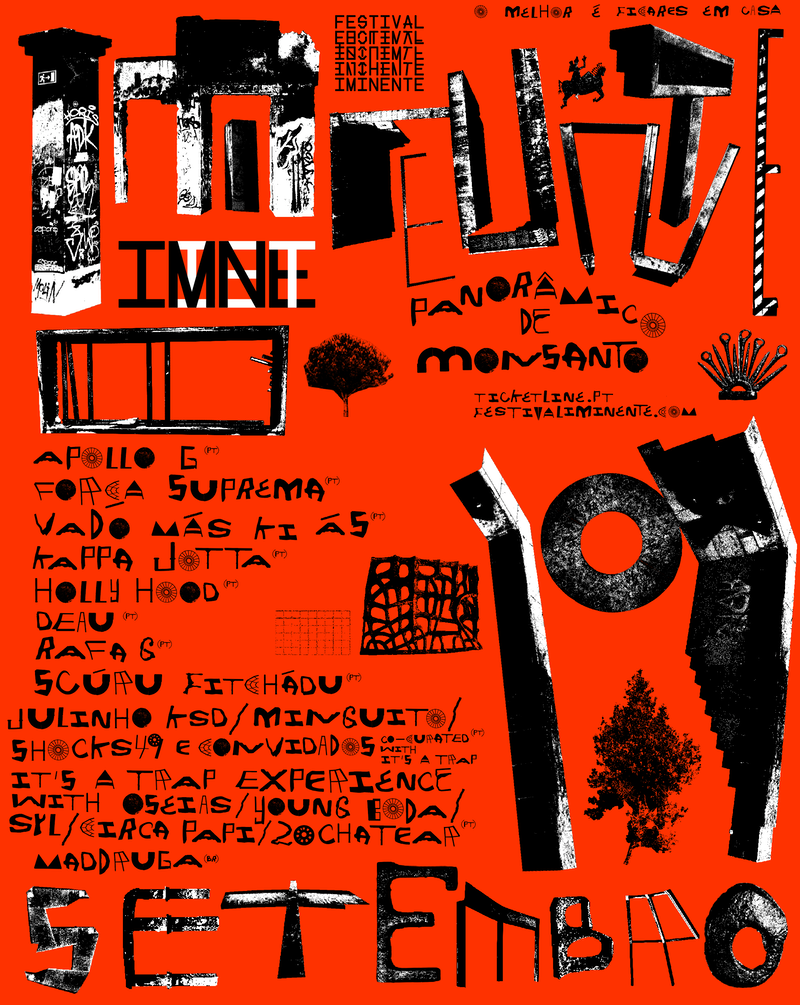 FESTIVAL
IMINENTE
MELHOR É FICARES EM CASA
IMINENTE
PANORÂMICO
DE
MONSANTO
TICKETLINE.PT
FESTIVALIMINENTE.COM
APOLLO G (PT)
FORÇA SUPREMA (PT)
VADO MÁS KI ÁS (PT)
KAPPA JOTTA (PT)
HOLLY HOOD (PT)
DEAU (PT)
RAFA G (PT)
SCÚRU FITCHÁDU (PT)
JULINHO KSD/MINGUITO/
SHOCKS49 E CONVIDADOS CO-CURATED WITH IT'S A TRAP (PT)
IT'S A TRAP EXPERIENCE
WITH OSEIAS/YOUNG BODA/
SYL/CIRCA PAPI/20CHATEAR (PT)
MADDRUGA (BR)
19
SETEMBRO